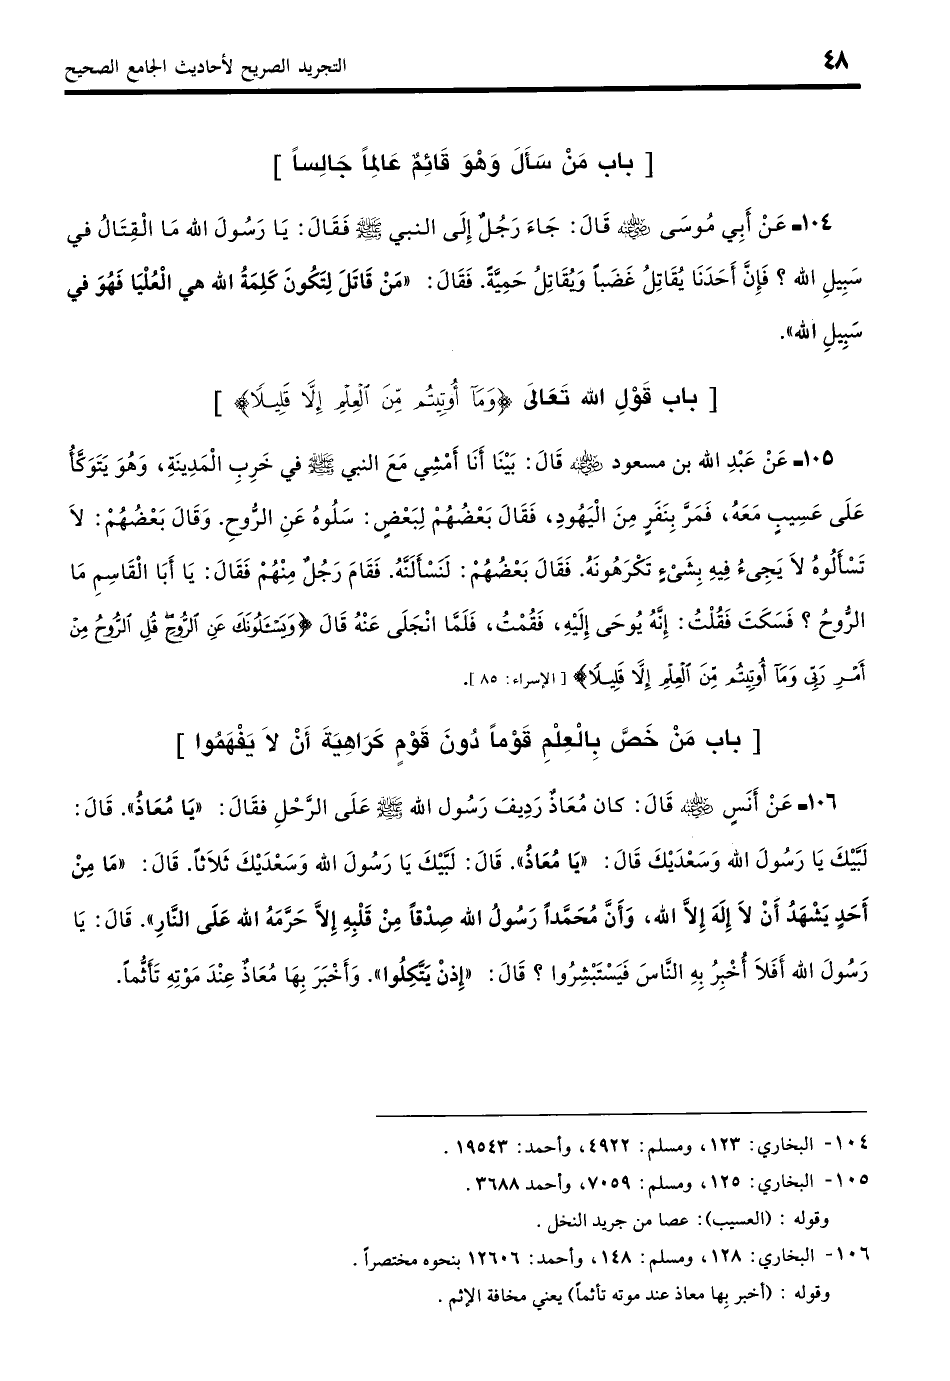 ٤٨
التجريد الصريح لأحاديث الجامع الصحيح
[ باب مَنْ سَأَلَ وَهْوَ قَائِمٌ عَالِماً جَالِساً ]
١٠٤ـ عَنْ أَبِي مُوسَى ﵁ قَالَ: جَاءَ رَجُلٌ إِلَى النبي ﷺ فَقَالَ: يَا رَسُولَ الله مَا الْقِتَالُ في
سَبِيلِ الله ؟ فَإِنَّ أَحَدَنَا يُقَاتِلُ غَضَباً وَيُقَاتِلُ حَمِيَّةً. فَقَالَ: «مَنْ قَاتَلَ لِتَكُونَ كَلِمَةُ الله هي الْعُلْيَا فَهُوَ في
سَبِيلِ الله».
[ باب قَوْلِ الله تَعَالَى ﴿وَمَآ أُوتِيتُم مِّنَ ٱلْعِلْمِ إِلَّا قَلِيلًا﴾ ]
١٠٥ـ عَنْ عَبْدِ الله بن مسعود ﵁ قَالَ: بَيْنَا أَنَا أَمْشِي مَعَ النبي ﷺ في خَرِبِ الْمَدِينَةِ، وَهُوَ يَتَوَكَّأُ
عَلَى عَسِيبٍ مَعَهُ، فَمَرَّ بِنَفَرٍ مِنَ الْيَهُودِ، فَقَالَ بَعْضُهُمْ لِبَعْضٍ: سَلُوهُ عَنِ الرُّوحِ. وَقَالَ بَعْضُهُمْ: لاَ
تَسْأَلُوهُ لاَ يَجِيءُ فِيهِ بِشَيْءٍ تَكْرَهُونَهُ. فَقَالَ بَعْضُهُمْ: لَنَسْأَلَنَّهُ. فَقَامَ رَجُلٌ مِنْهُمْ فَقَالَ: يَا أَبَا الْقَاسِمِ مَا
الرُّوحُ ؟ فَسَكَتَ فَقُلْتُ: إِنَّهُ يُوحَى إِلَيْهِ، فَقُمْتُ، فَلَمَّا انْجَلَى عَنْهُ قَالَ ﴿وَيَسْـَٔلُونَكَ عَنِ ٱلرُّوحِ ۖ قُلِ ٱلرُّوحُ مِنْ
أَمْرِ رَبِّى وَمَآ أُوتِيتُم مِّنَ ٱلْعِلْمِ إِلَّا قَلِيلًا﴾ [ الإسراء: ٨٥ ].
[ باب مَنْ خَصَّ بِالْعِلْمِ قَوْماً دُونَ قَوْمٍ كَرَاهِيَةَ أَنْ لاَ يَفْهَمُوا ]
١٠٦ـ عَنْ أَنَسٍ ﵁ قَالَ: كان مُعَاذٌ رَدِيفَ رَسُول الله ﷺ عَلَى الرَّحْلِ فقَالَ: «يَا مُعَاذُ». قَالَ:
لَبَّيْكَ يَا رَسُولَ الله وَسَعْدَيْكَ قَالَ: «يَا مُعَاذُ». قَالَ: لَبَّيْكَ يَا رَسُولَ الله وَسَعْدَيْكَ ثَلاَثاً. قَالَ: «مَا مِنْ
أَحَدٍ يَشْهَدُ أَنْ لاَ إِلَهَ إِلاَّ الله، وَأَنَّ مُحَمَّداً رَسُولُ الله صِدْقاً مِنْ قَلْبِهِ إِلاَّ حَرَّمَهُ الله عَلَى النَّارِ». قَالَ: يَا
رَسُولَ الله أَفَلاَ أُخْبِرُ بِهِ النَّاسَ فَيَسْتَبْشِرُوا ؟ قَالَ: «إِذَنْ يَتَّكِلُوا». وَأَخْبَرَ بِهَا مُعَاذٌ عِنْدَ مَوْتِهِ تَأَثُّماً.
١٠٤- البخاري: ١٢٣، ومسلم: ٤٩٢٢، وأحمد: ١٩٥٤٣ .
١٠٥- البخاري: ١٢٥، ومسلم: ٧٠٥٩، وأحمد ٣٦٨٨.
وقوله : (العسيب): عصا من جريد النخل .
١٠٦- البخاري: ١٢٨، ومسلم: ١٤٨، وأحمد: ١٢٦٠٦ بنحوه مختصراً .
وقوله : (أخبر بِها معاذ عند موته تأثماً) يعني مخافة الإثم .